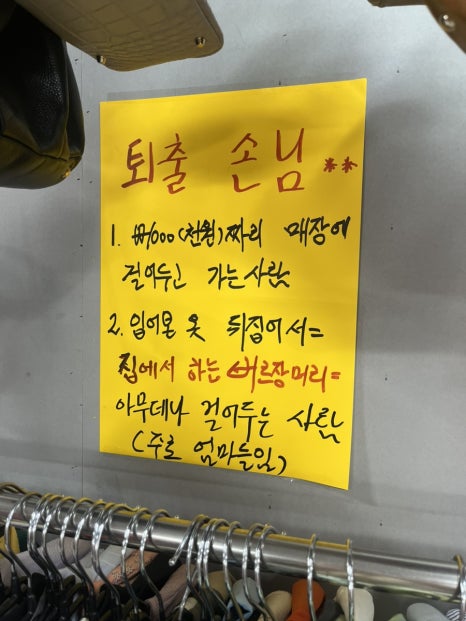 퇴출 손님 **
1. ₩1000(천원)짜리 매장에
걸어두고 가는사람
2. 입어본 옷 뒤집어서=
집에서 하는 버르장머리=
아무데나 걸어두는 사람
(주로 엄마들임)